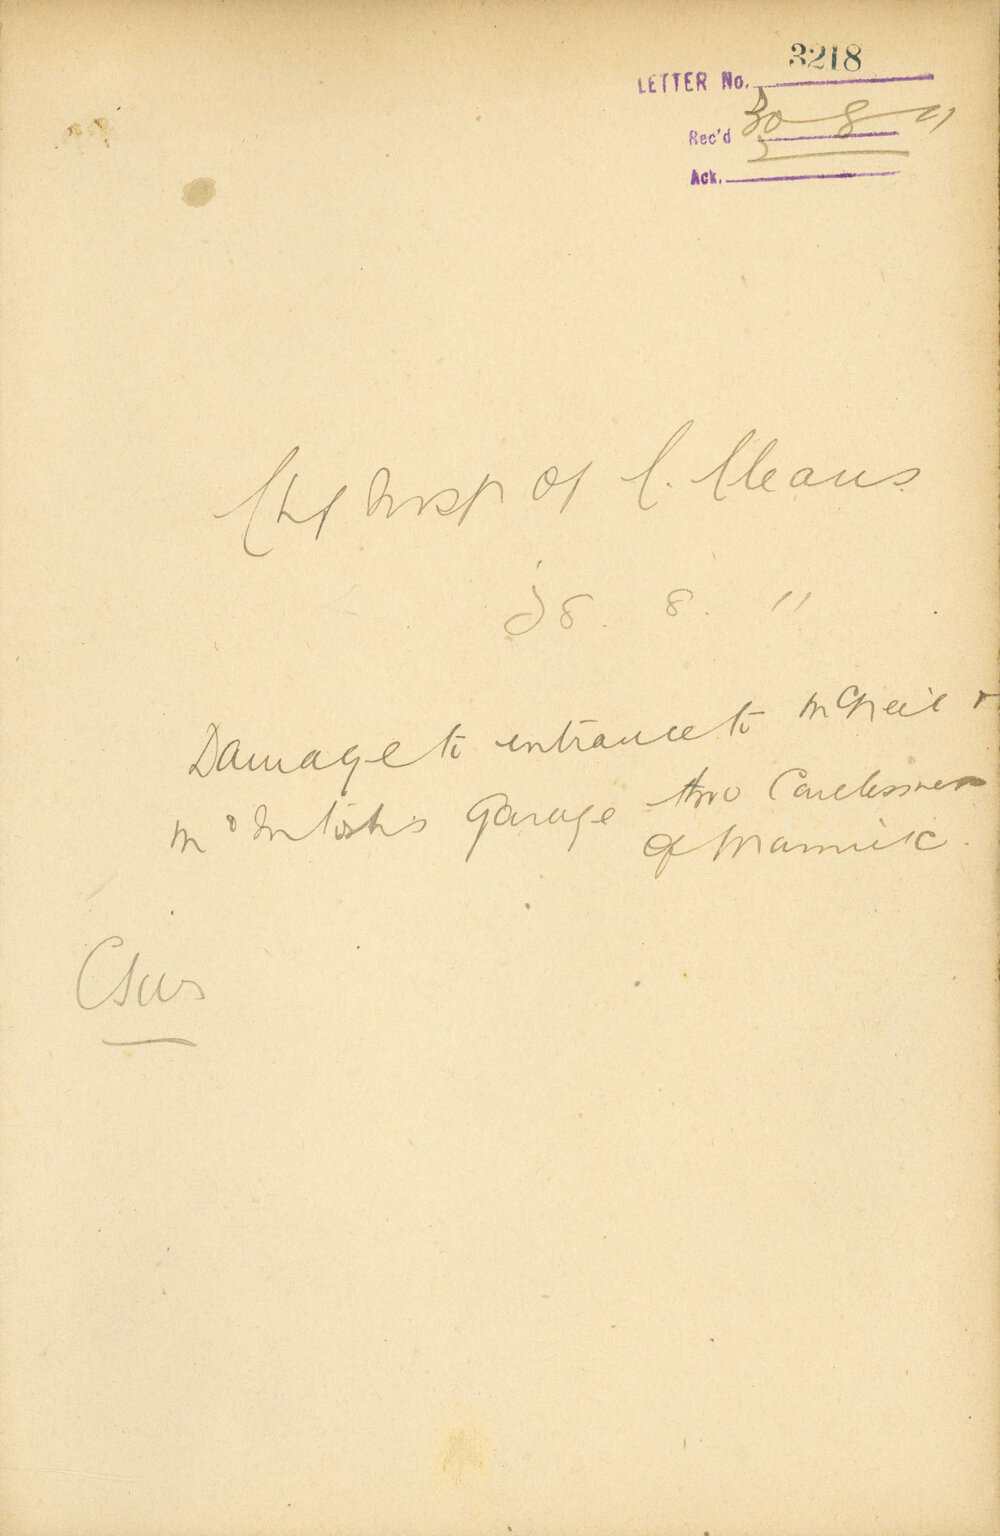 LETTER No. 3218
Rec'd 30 8 11
Ack.
Chf Insp of C. Cleans
28. 8. 11
Damage to entrance to McNeil &
McIntosh's Garage thro Carelessness
of Mannix.